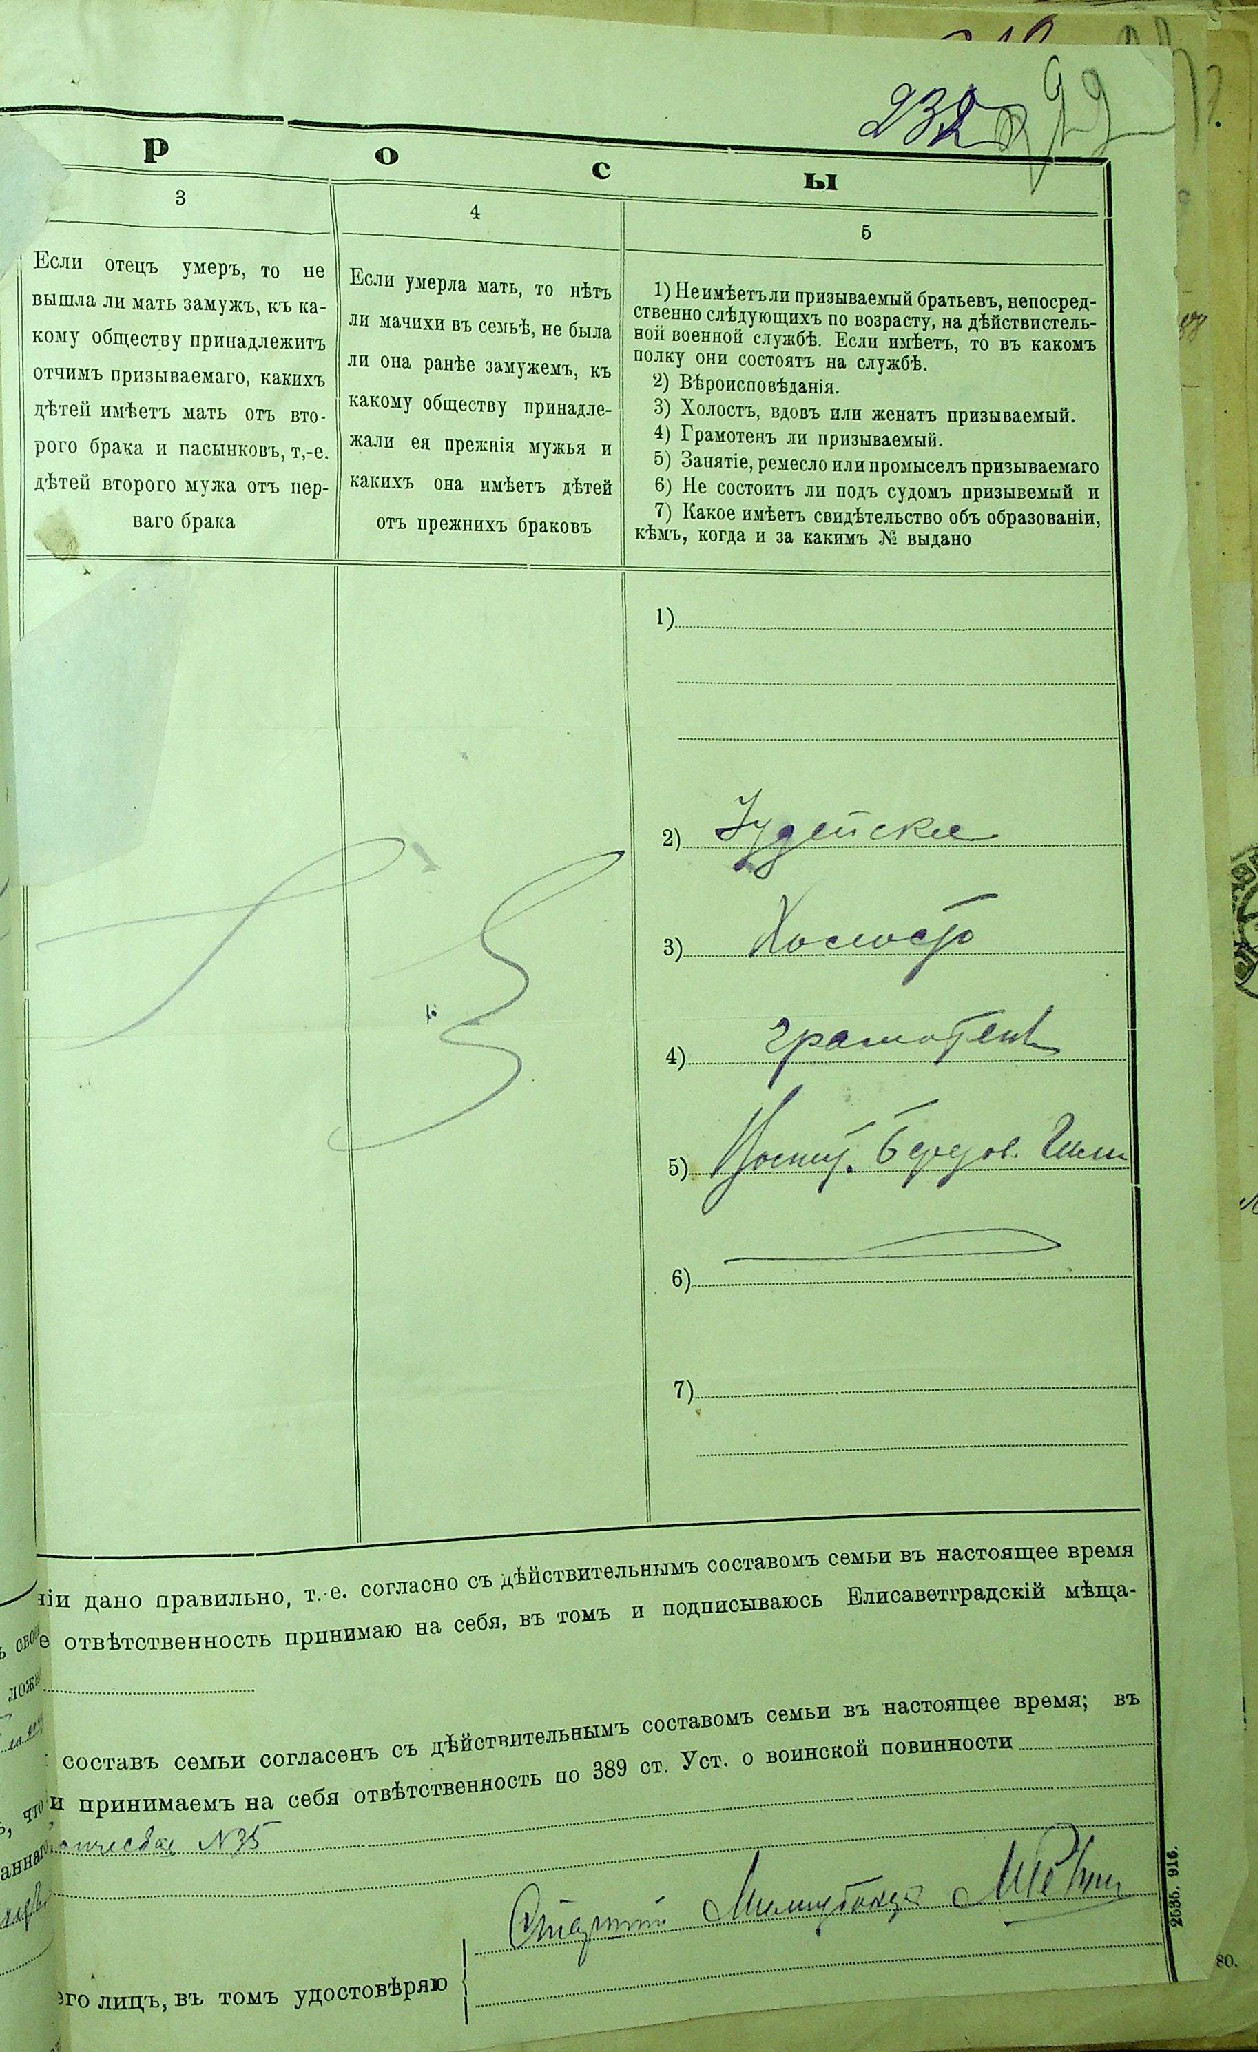 232 299
р о с ы
3
Если отецъ умеръ, то не
вышла ли мать замужъ, къ ка-
кому обществу принадлежитъ
отчимъ призываемаго, какихъ
дѣтей имѣетъ мать отъ вто-
рого брака и пасынковъ, т,-е.
дѣтей второго мужа отъ пер-
ваго брака
4
Если умерла мать, то нѣтъ
ли мачихи въ семьѣ, не была
ли она ранѣе замужемъ, къ
какому обществу принадле-
жали ея прежнія мужья и
какихъ она имѣетъ дѣтей
отъ прежнихъ браковъ
5
1) Неимѣетъли призываемый братьевъ, непосред-
ственно слѣдующихъ по возрасту, на дѣйствистель-
ной военной службѣ. Если имѣетъ, то въ какомъ
полку они состоятъ на службѣ.
2) Вѣроисповѣданія.
3) Холостъ, вдовъ или женатъ призываемый.
4) Грамотенъ ли призываемый.
5) Занятіе, ремесло или промыселъ призываемаго
6) Не состоитъ ли подъ судомъ призывемый и
7) Какое имѣетъ свидѣтельство объ образованіи,
кѣмъ, когда и за какимъ № выдано
1)
2) Іудейске
3) Холостъ
4) грамотенъ
5)
6)
7)
ніи дано правильно, т.-е. согласно съ дѣйствительнымъ составомъ семьи въ настоящее время
е отвѣтственность принимаю на себя, въ томъ и подписываюсь Елисаветградскій мѣща-
составъ семьи согласенъ съ дѣйствительнымъ составомъ семьи въ настоящее время; въ
и принимаемъ на себя отвѣтственность по 389 ст. Уст. о воинской повинности
N35
Старший
его лицъ, въ томъ удостовѣряю
2535. 916.
80.